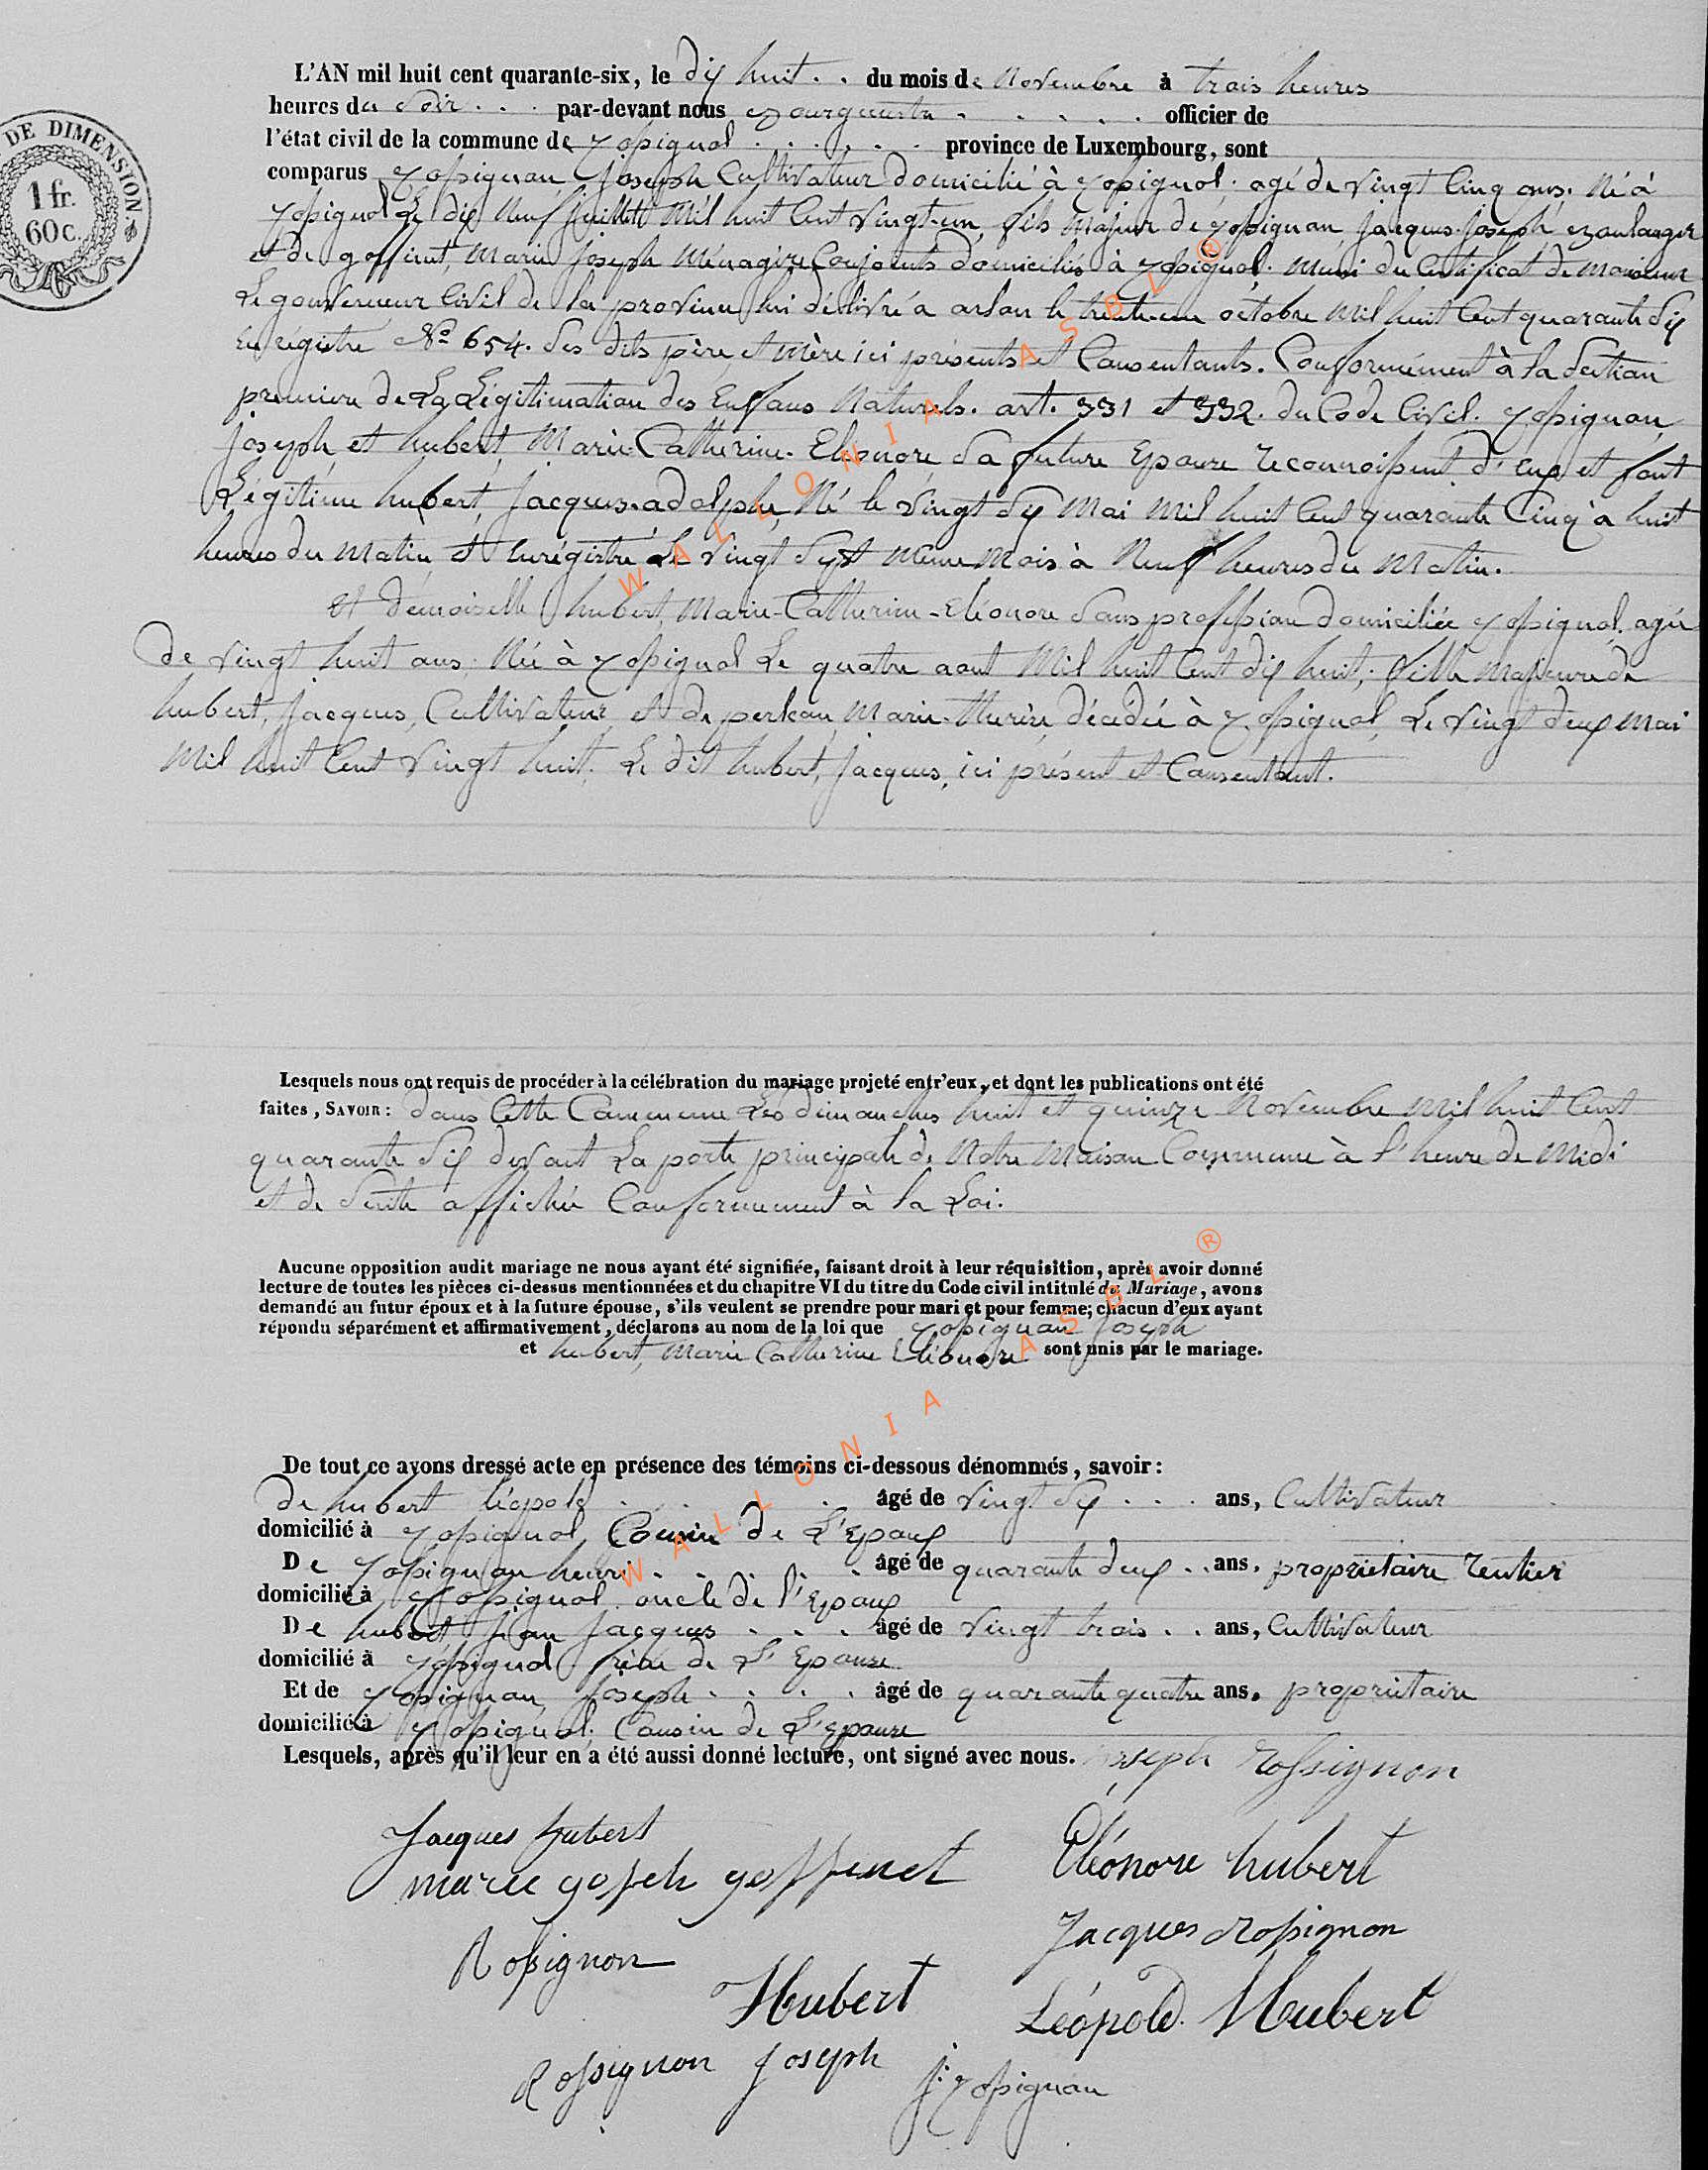 DE DIMENSION
1 fr.
60 c.
L'AN mil huit cent quarante-six, le dix huit . . du mois de Novembre à trois heures
heures du Soir . . . par-devant nous Bourguemestre . . . . . officier de
l'état civil de la commune de rossignol . . . . . . province de Luxembourg, sont
comparus rossignon, Joseph Cultivateur domicilié à rossignol. agé de vingt Cinq ans. Né à
rossignol Le dix Neuf juillet Mil huit Cent vingt-un, fils Majeur de rossignon, jacques-joseph, Boulanger
et de goffinet, Marie joseph Ménagère Conjoints domiciliés à rossignol. Muni du Certificat de Monsieur
Le gouverneur Civil de la province lui délivré à arlon le trente-un octobre Mil huit Cent quarante Six
en registre N.º 654. Ses dits père et Mère ici présents et Consentants. Conformément à la Section
premiere de La Légitimation des Enfans Naturels. art. 331 et 332. du Code Civil. rossignon,
joseph, et hubert, Marie-Catherine-Eléonore, Sa future Epouse reconnoissent d'eux et font
Légitime hubert, jacques-adolphe, Né le vingt Six Mai Mil huit Cent quarante Cinq à huit
heures du Matin et enrégistré Le vingt Sept même Mois à Neuf heures du Matin.
et demoiselle hubert, Marie-Catherine-Eléonore Sans profession domiciliée rossignol. agée
de vingt huit ans. Née à rossignol Le quatre aout Mil huit Cent dix huit, fille Majeure de
hubert, jacques, Cultivateur et de Marie-therèse, décédée à rossignol, Le vingt deux Mai
Mil huit Cent vingt huit. Le dit hubert, jacques, ici présent et Consentant.
Lesquels nous ont requis de procéder à la célébration du mariage projeté entr'eux, et dont les publications ont été
faites, SAVOIR : dans Cette Commune Les dimanches huit et quinze Novembre Mil huit Cent
quarante Six devant La porte principale de Notre Maison Commune à l'heure de Midi
et de Suite affichée Conformement à la Loi.
Aucune opposition audit mariage ne nous ayant été signifiée, faisant droit à leur réquisition, après avoir donné
lecture de toutes les pièces ci-dessus mentionnées et du chapitre VI du titre du Code civil intitulé du Mariage, avons
demandé au futur époux et à la future épouse, s'ils veulent se prendre pour mari et pour femme; chacun d'eux ayant
répondu séparément et affirmativement, déclarons au nom de la loi que rossignon Joseph
et hubert, Marie Catherine Eléonore sont unis par le mariage.
De tout ce avons dressé acte en présence des témoins ci-dessous dénommés, savoir :
de hubert léopold . . . . âgé de vingt Six . . . ans, Cultivateur
domicilié à rossignol, Cousin de L'Epoux
De rossignon henri . . . . . âgé de quarante deux . . ans, propriétaire rentier
domicilié à rossignol. oncle de l'Epoux
De hubert jean jacques . . . âgé de vingt trois . . ans, Cultivateur
domicilié à rossignol. frère de L'Epouse
Et de rossignon, joseph . . . . âgé de quarante quatre ans, propriétaire
domicilié à rossignol, Cousin de L'Epouse
Lesquels, après qu'il leur en a été aussi donné lecture, ont signé avec nous. joseph rossignon
Jacques hubert
Eléonore hubert
marie gosph goffinet
Jacques rossignon
Rossignon
Hubert
Léopold Hubert
Rossignon Joseph
j. rossignon
WALLONIA ASBL ®
WALLONIA ASBL ®